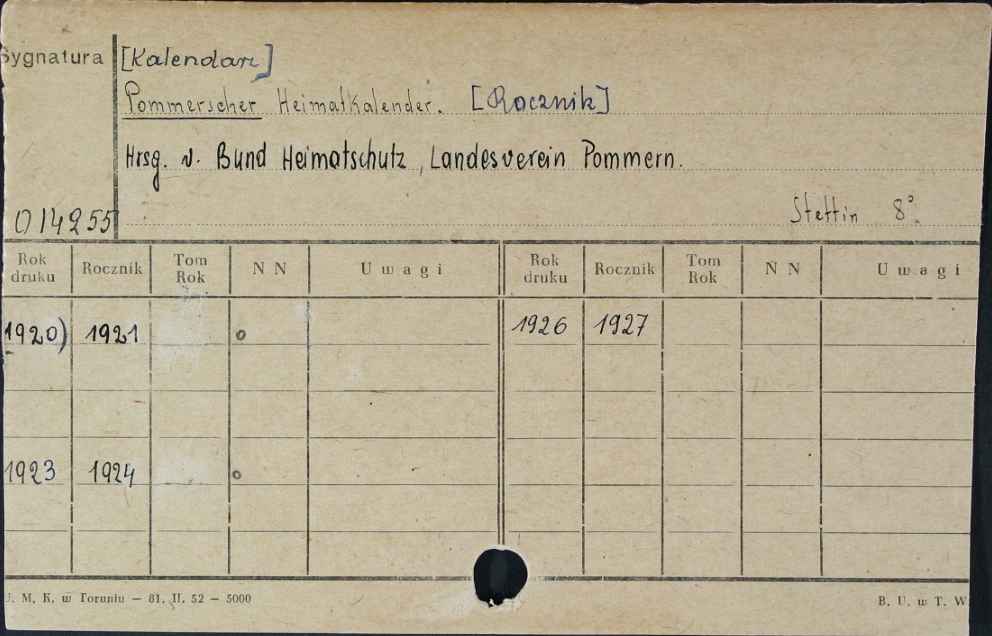 Sygnatura [Kalendarz]
Pommerscher Heimatkalender. [Rocznik]
Hrsg. v. Bund Heimatschutz, Landesverein Pommern.
014255 Stettin 8°.
Rok druku Rocznik Tom Rok N N Uwagi Rok druku Rocznik Tom Rok N N Uwagi
1920) 1921 o 1926 1927
1923 1924 o
J. M. K. w Toruniu — 81. II. 52 — 5000 B. U. w T. W